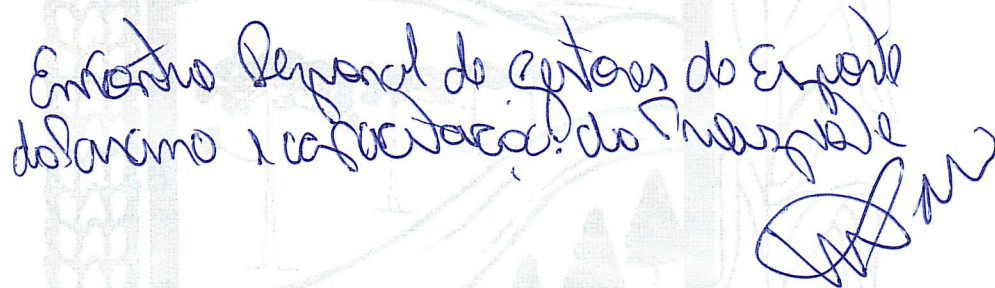 Encontro Regional de gestores do Esporte
do Paraná e capacitação do Proesporte